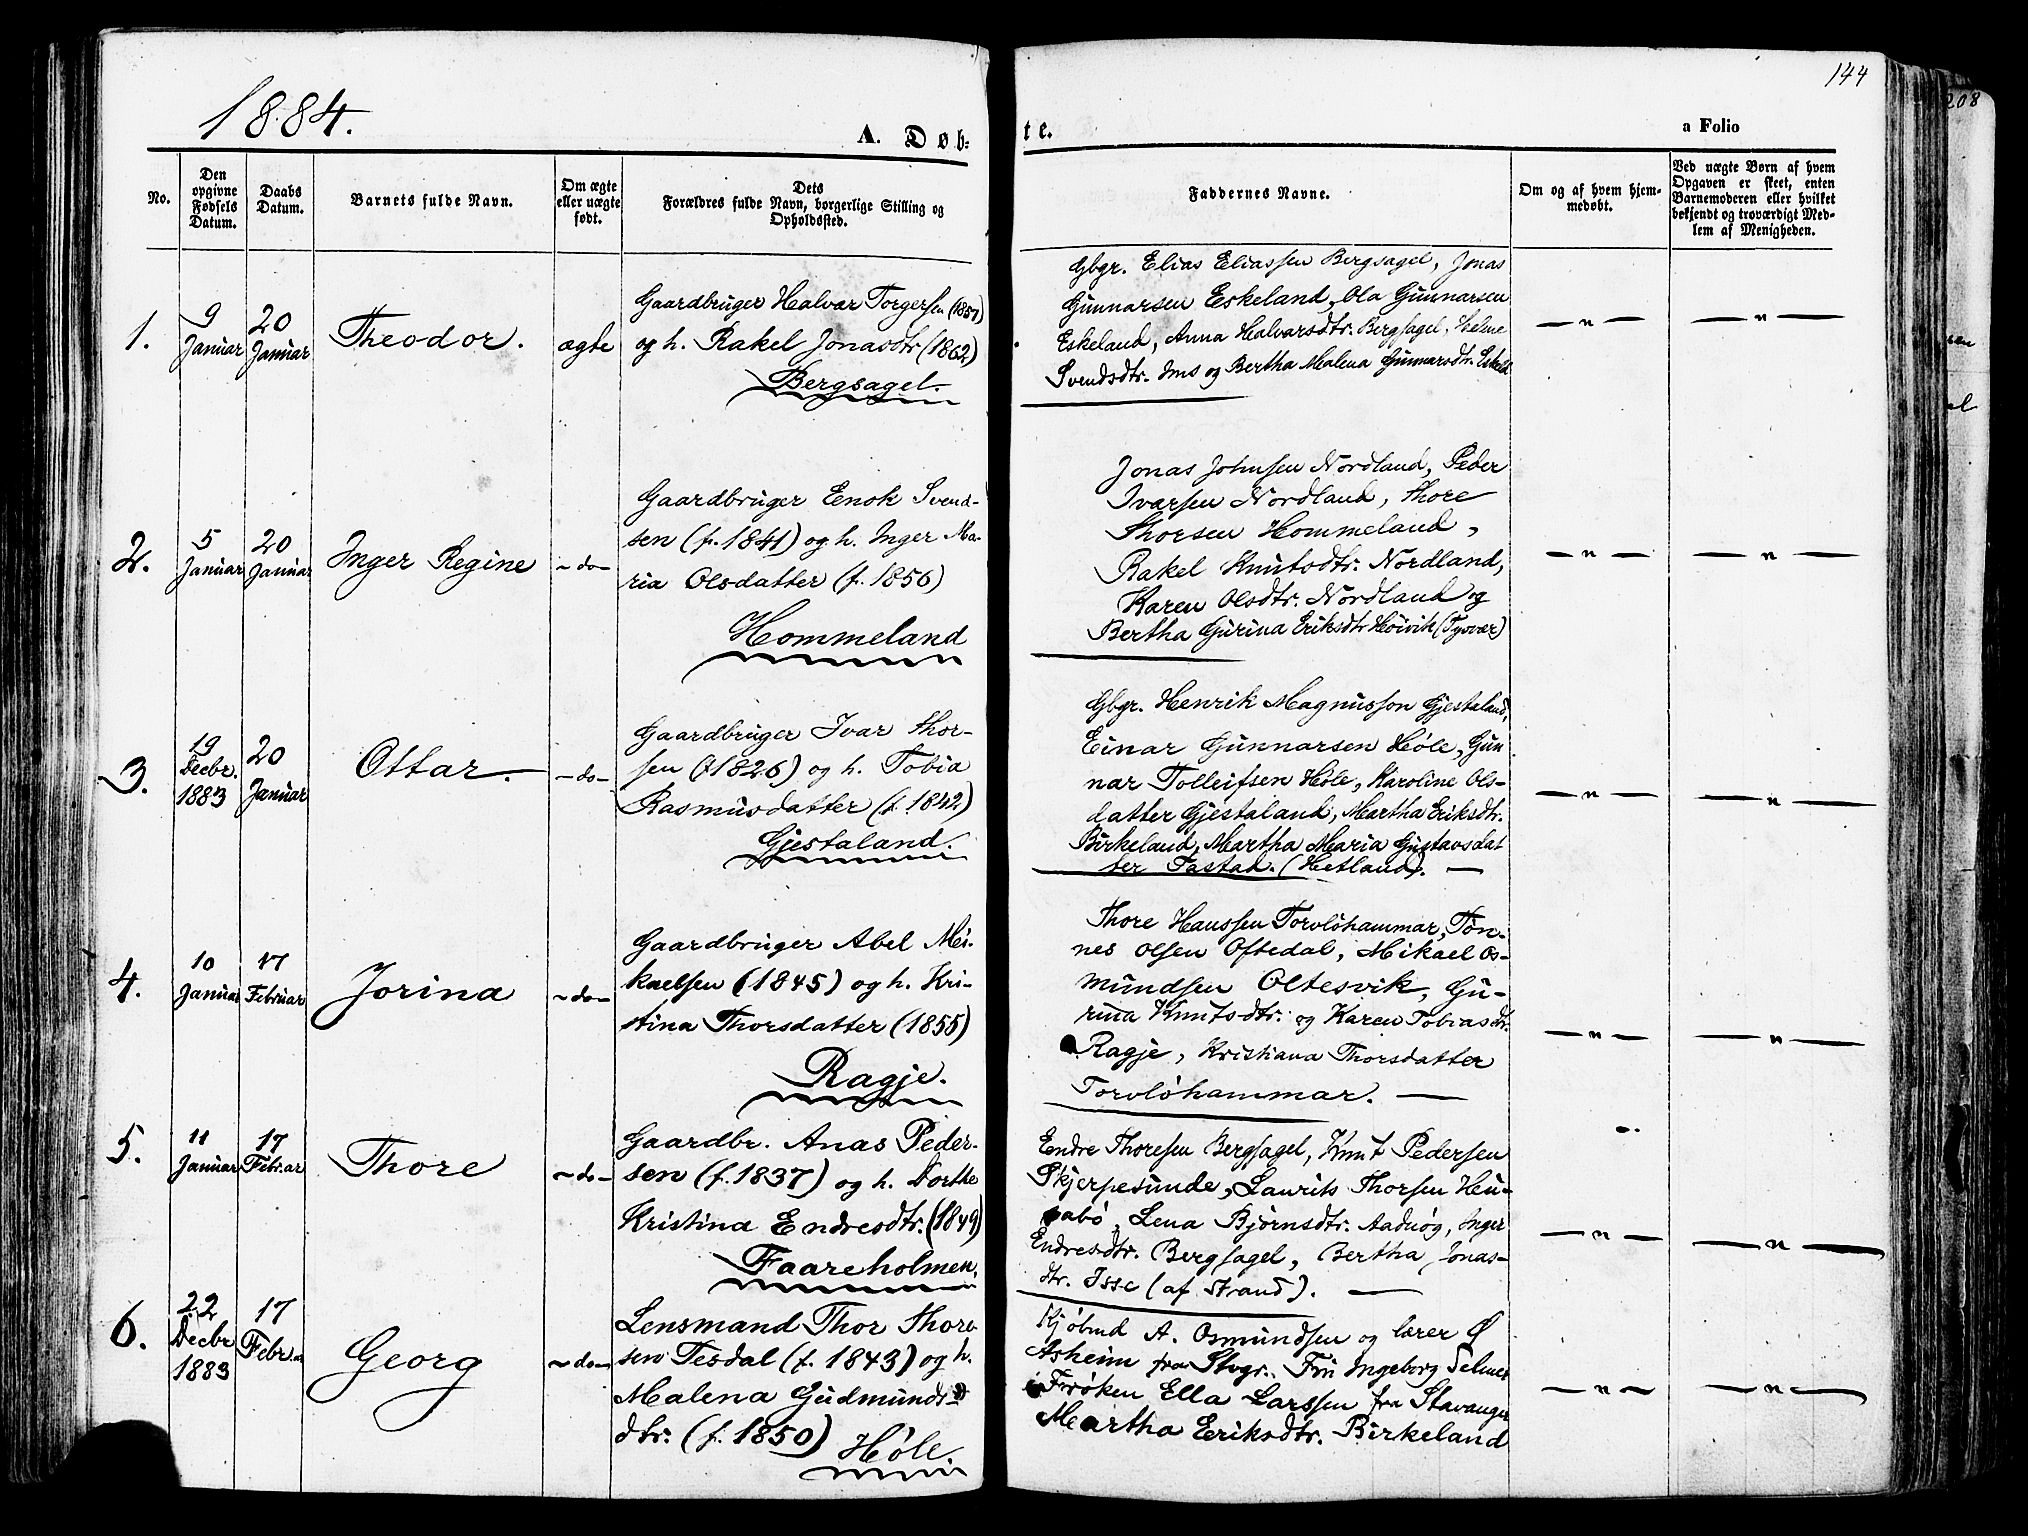 144
208
1884.
A. Døb-
te.
a Folio
No.
Den
opgivne
Fødsels
Datum.
Daabs
Datum.
Barnets fulde Navn.
Om ægte
eller uægte
født.
Dets
Forældres fulde Navn, borgerlige Stilling og
Opholdssted.
Faddernes Navne.
Om og af hvem hjem-
medøbt.
Ved uægte Børn af hvem
Opgaven er skeet, enten
Barnemoderen eller hvilket
bekjendt og troværdigt Med-
lem af Menigheden.
1.
9
Januar
20
Januar
Theodor.
ægte
Gaardbruger Halvar Torgersen (1857)
og h. Rakel Jonasdtr (1862)
Bergsagel.
Gbgr. Elias Eliassen Bergsagel, Jonas
Gunnarsen Eskeland, Ola Gunnarsen
Eskeland, Anna Halvarsdtr. Bergsagel, Helene
Svendsdtr. Ims og Bertha Malena Gunnarsdtr. Eskeld
— " —
— " —
2.
5
Januar
20
Januar
Inger Regine
- do -
Gaardbruger Eenok Svend-
sen (f. 1841) og h. Inger Ma-
ria Olsdatter (f. 1856)
Hommeland
Jonas Johnsen Nordland, Peder
Ivarsen Nordland, Thore
Thorsen Hommeland,
Rakel Knutsdtr. Nordland,
Karen Olsdtr. Nordland og
Bertha Gurina Eriksdtr Høivik (Tysvær)
— " —
— " —
3.
19
Decbr.
1883
20
Januar
Ottar.
- do -
Gaardbruger Ivar Thor-
sen (f 1826) og h. Tobia
Rasmusdatter (f. 1842)
Gjestaland.
Gbgr. Henrik Magnusson Gjestaland,
Einar Gunnarsen Høle, Gun
nar Tolleifsen Høle, Karoline Ols-
datter Gjestaland, Martha Eriksdtr.
Birkeland, Martha Maria Gustavsdat
ter Tastad. (Hetland). —
— " —
— " —
4.
10
Januar
17
Februar
Jorina
- do -
Gaardbruger Abel Mi-
kaelsen (1845) og h. Kri-
stina Thorsdatter (1855)
Ragje.
Thore Hanssen Torvløhammar, Tøn-
nes Olsen Oftedal, Mikael Os-
mundsen Oltesvik, Gu-
rina Knutsdtr. og Karen Tobiasdtr.
Ragje, Kristiana Thorsdatter
Torvløhammar. —
— " —
— " —
5.
11
Januar
17
Februar
Thore
- do -
Gaardbr. Anas Peder-
sen (f. 1837) og h. Dorthe
Kristina Endresdtr. (1849)
Faareholmen.
Endre Thoresen Bergsagel, Knut Pedersen
Skjerpesunde, Laurits Thorsen Heu-
sabø, Lena Bjørnsdtr. Aadnøg, Inger
Endresdtr. Bergsagel, Bertha Jonas-
dtr. Isse (af Strand). —
— " —
— " —
6.
22
Decbr
1883
17
Febr.
Georg
- do -
Lensmand Thor Thore
sen Tesdal (f. 1843) og h.
Malena Gudmunds-
dtr. (f. 1850)
Høle.
Kjøbmd A. Osmundsen og lærer Ø
Asheim fra Stvgr. Fru Ingeborg Selmer
Frøken Ella Larssen fra Stavanger
Martha Eriksdtr. Birkeland
— " —
— " —